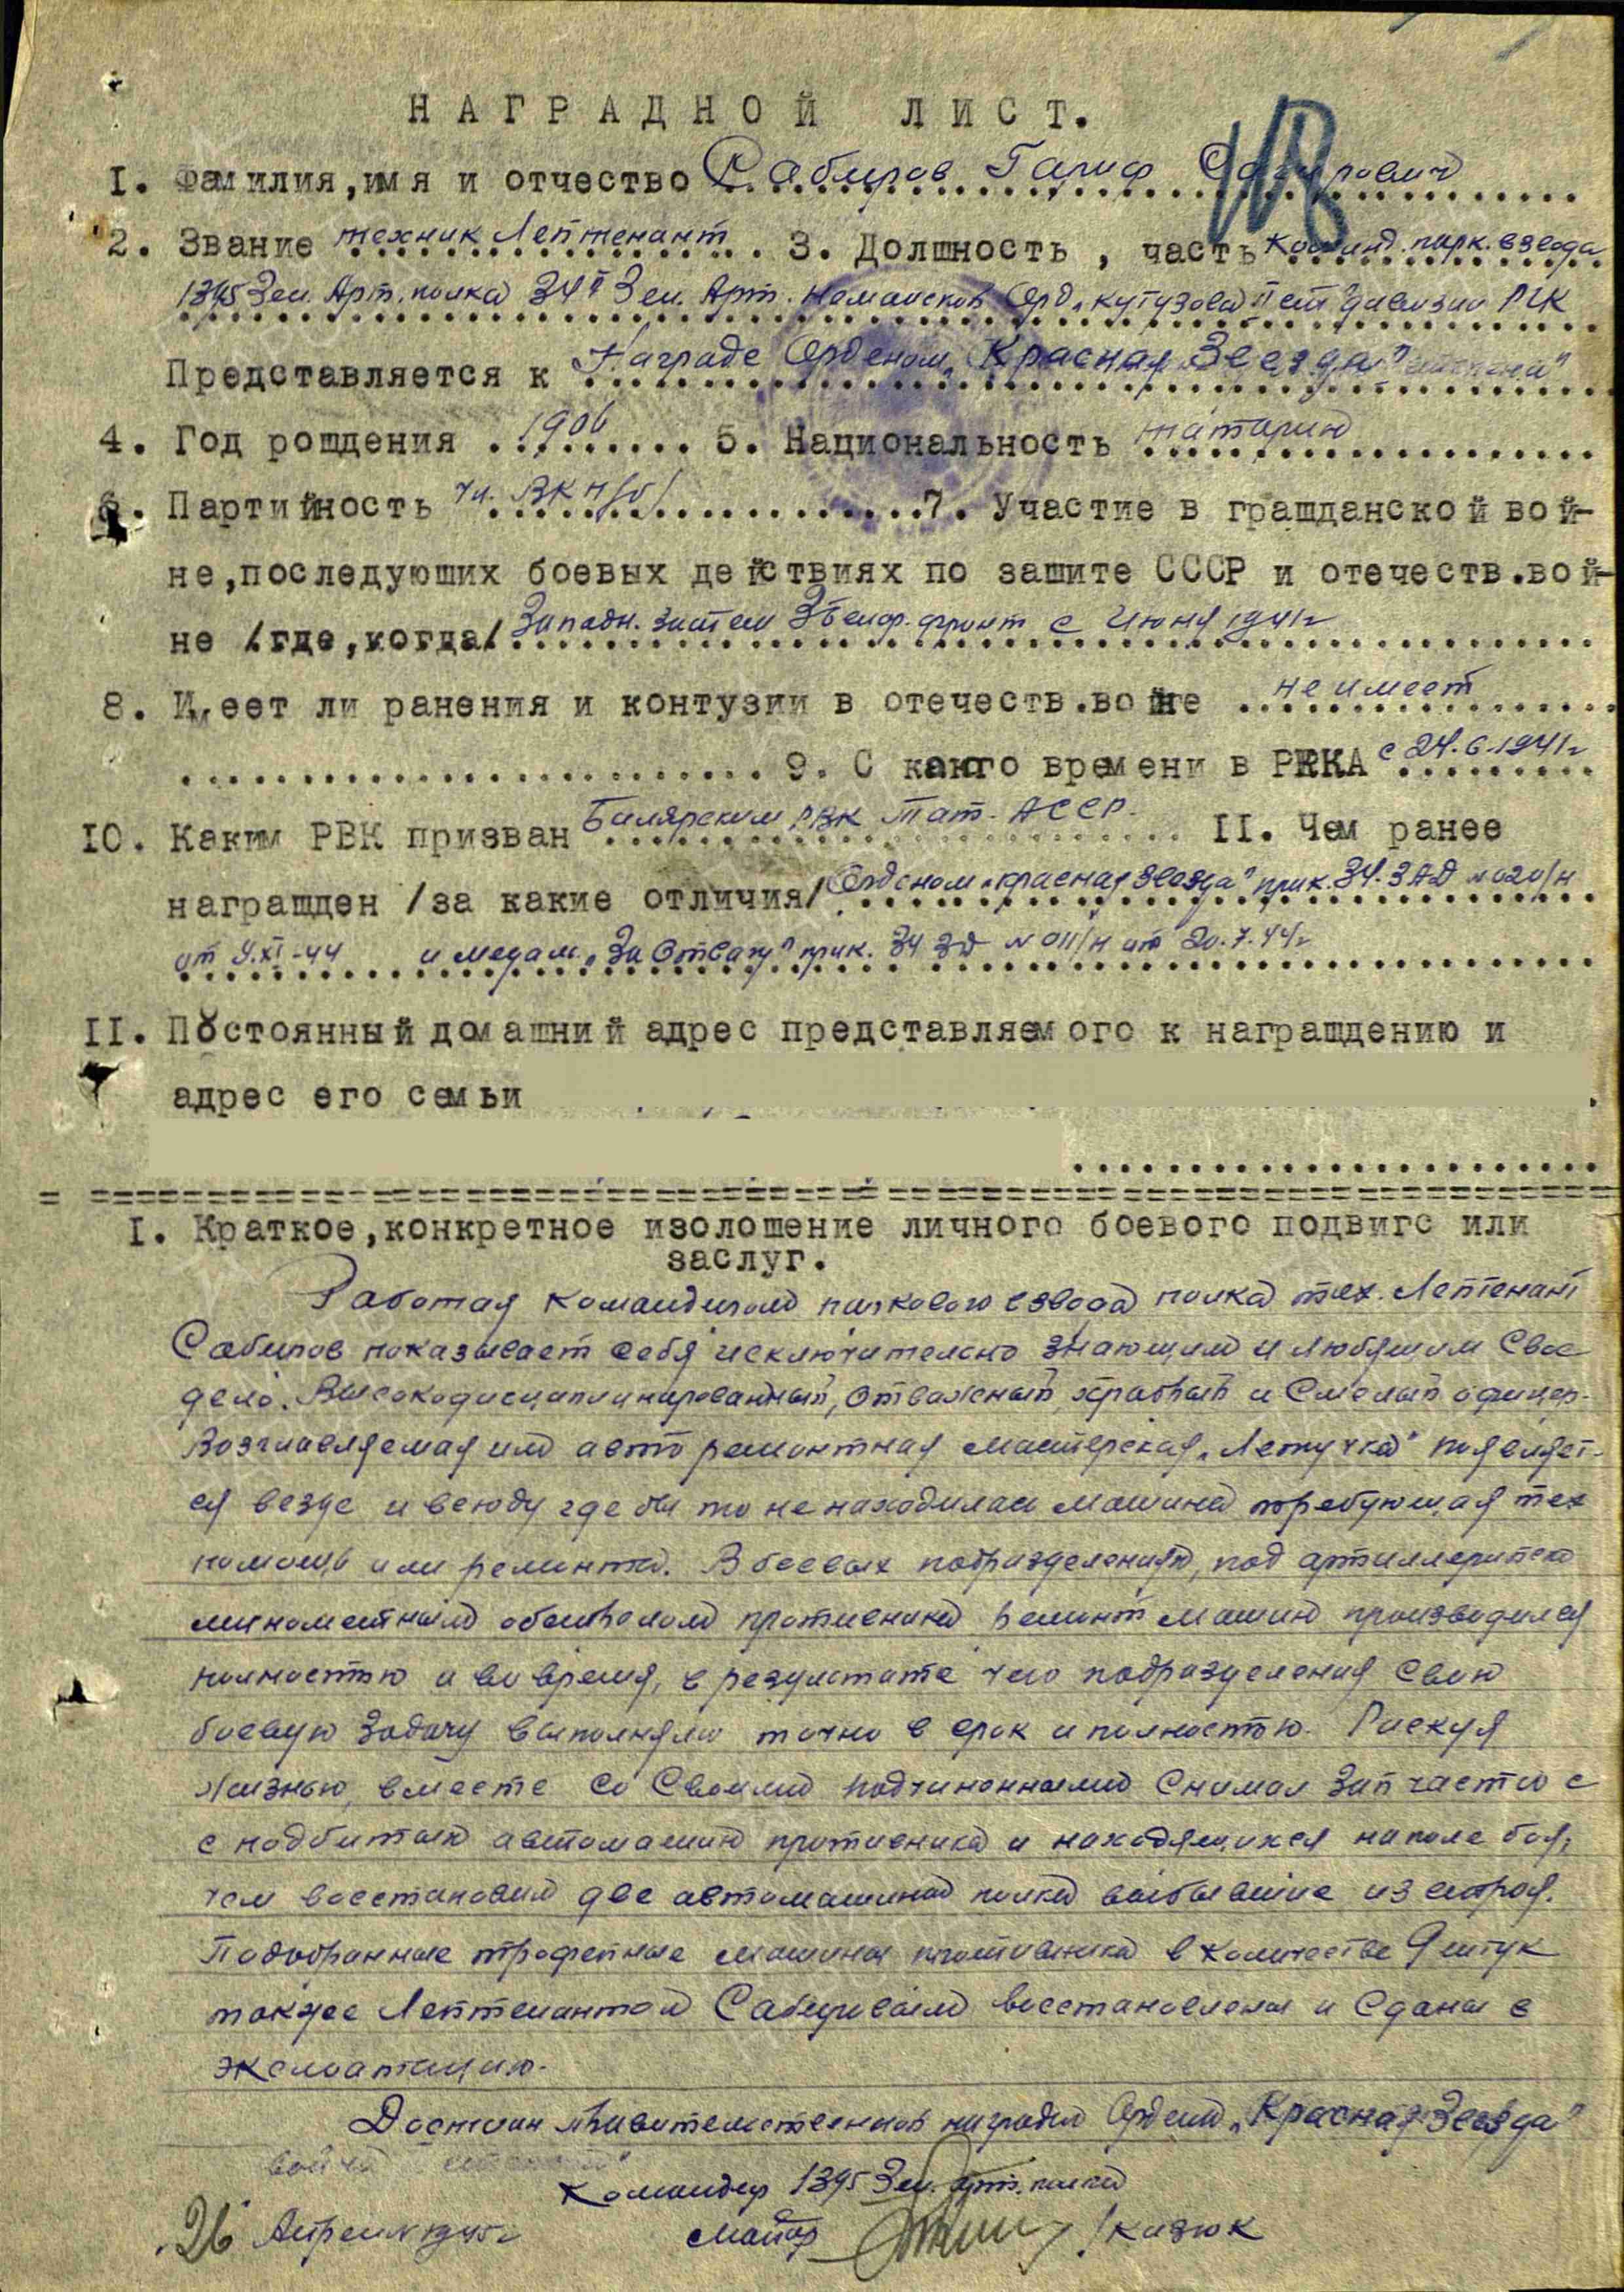 НАГРАДНОЙ ЛИСТ.
I. Фамилия, имя и отчество Сабиров Гариф
2. Звание техник Лейтенант 3. Долшность, часть Команд. парк. взвода
1395 Зен. Арт. полка 34й Зен. Арт. Неманской Орд. "Кутузова" II ст дивизии РГК
Представляется к Награде Орденом "Красная Звезда"
4. Год рощдения 1906 5. Национальность татарин
6. Партийность чл. ВКП(б) 7. Участие в гращданской вой-
не, последующих боевых действиях по защите СССР и отечеств. вой-
не /где, когда/ Западн. затем 3 Белор. фронт с Июня 1941г
8. Имеет ли ранения и контузии в отечеств. войне не имеет
9. С какого времени в РККА с 24.6.1941г
10. Каким РВК призван Билярским РВК Тат. АССР. II. Чем ранее
награщден /за какие отличия/ Орденом "красная звезда" прик. 34. ЗАД №020/н
от 9.XI-44 и медал. "За Отвагу" прик. 34 ЗД №011/н от 20.7.44г
II. Постоянный домашний адрес представляемого к награщдению и
адрес его семьи
I. Краткое, конкретное изолошение личного боевого подвигс или
заслуг.
Работая командиром паркового взвода полка тех. Лейтенант
Сабиров показывает себя исключительно знающим и любящим Свое
дело. Высокодисциплинированный, отважный, храбрый и Смелый офицер.
Возглавляемая им авто ремонтная мастерская "Летучка" появляет-
ся везде и всюду где бы то не находилась машина требующая тех
помощи или ремонта. В боевых подразделениях, под артиллерийско
минометным обстрелом противника ремонт машин производился
полностью и во время, в результате чего подразделения Свою
боевую задачу выполняли точно в срок и полностью. Рискуя
жизнью, вместе со Своими подчиненными Снимал запчасти с
с подбитых автомашин противника и находящихся на поле боя,
чем восстановил две автомашины полка выбывшие из строя.
Подобранные трофейные машины противника в количестве 9 штук
также Лейтенантом Сабировым восстановлены и Сданы в
эксплоатацию.
Достоин правительственной награды Орден "Красная Звезда"
Командир 1395 Зен. арт. полка
26 Апреля 1945г майор /Казюк